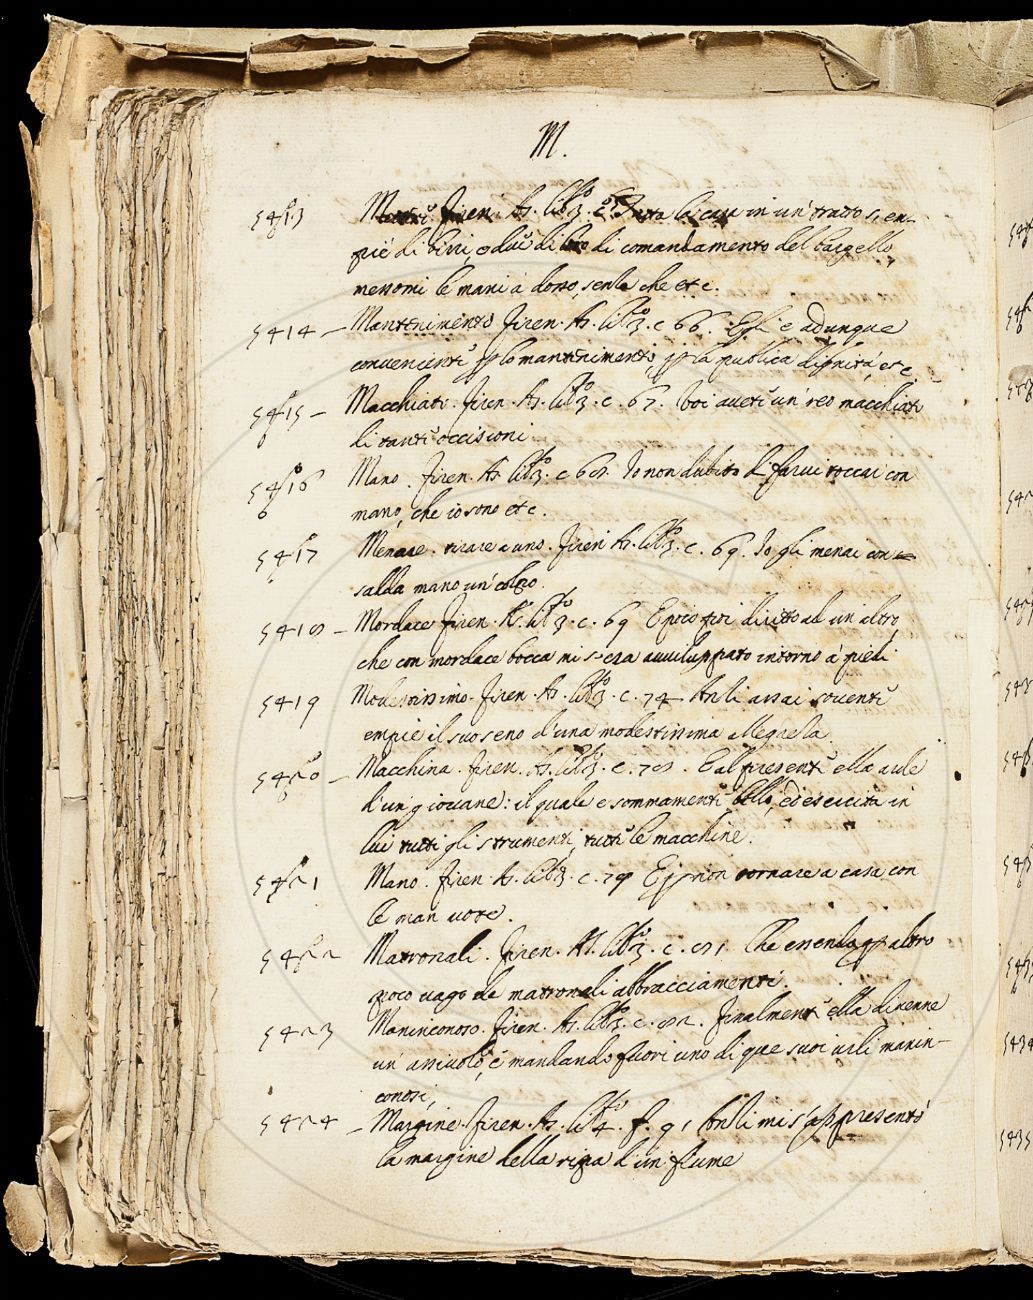 M.
5413 Firen. As. lib.o 3. c. Tutta la casa in un' tratto s' em-
piè di birri, e due di loro di comandamento del bargello,
messomi le mani à dosso, senza che etc.
5414 – Mantenimento Firen. As. lib.o 3. c 66. Egli è adunque
conveniente p lo mantenimento, p la publica dignità, etc.
5415 – Macchiati. Firen. As. lib.o 3. c. 67. Voi avete un' reo macchiati
di tante occisioni
5416 Mano. Firen. As. lib.o 3. c 68. Io non dubito di farvi toccar con
mano, che io sono etc.
5417 Menare. tirare a uno. Firen As. lib.o 3. c. 69. Io gli menai con
salda mano un' colpo.
5418 – Mordace Firen. As. lib.o 3. c. 69 E poco poi diritto ad un altro,
che con mordace bocca mi s' era avviluppato intorno à piedi
5419 Modestissimo. Firen. As. lib.o 3. c. 74 Anzi assai sovente
empiè il suo seno d' una modestissima allegrezza
5420 – Macchina. Firen. As. lib.o 3. c. 78. E al presente ella arde
d' un giovane: il quale e sommamente bello, ed esercita in
lui tutti gli strumenti, tutte le macchine.
5421 Mano. Firen. As. lib.o 3. c. 79 E p non tornare a casa con
le man vote.
5422 Matronali. Firen. As. lib.o 3. c. 81 Che essendo p altro
poco vago de matronali abbracciamenti.
5423 Maninconoso. Firen. As. lib.o 3. c. 82. Finalmente ella divenne
un' assiuolo, e mandando fuori uno di que suoi urli manin-
conosi,
5424 – Margine. Firen. As. lib.o 4. f. 91 Anzi mi s' appresentò
la margine della ripa d' un fiume